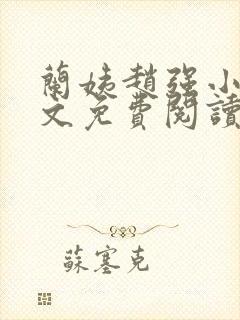 蘭姨趙強小
文免費閱讀
蘇塞克